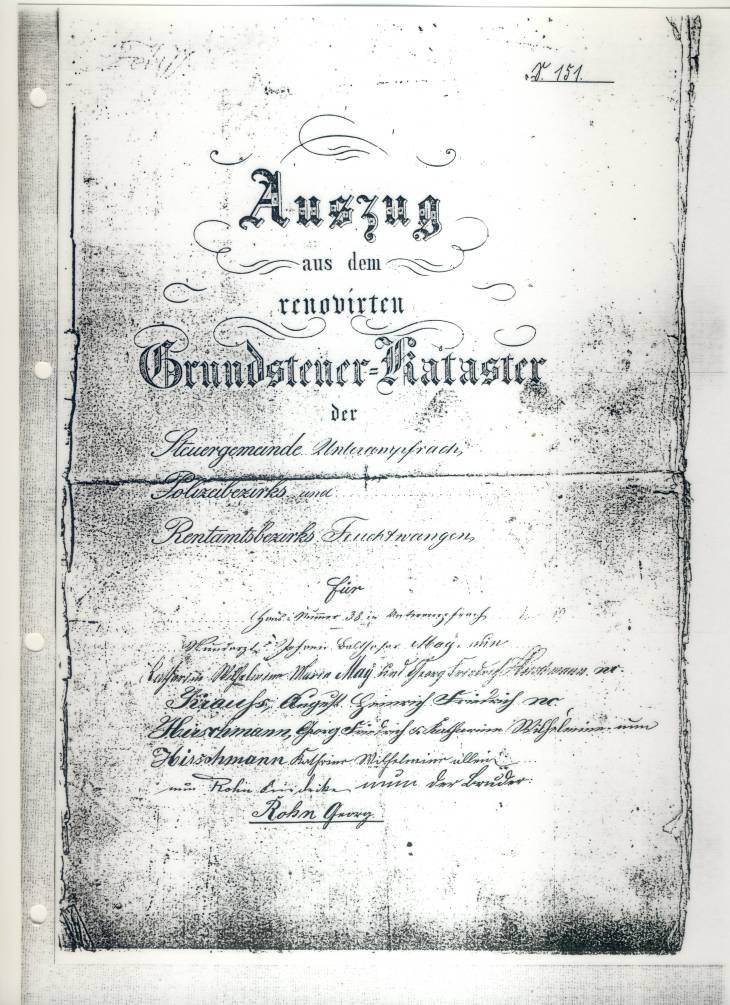 N. 151.
Auszug
aus dem
renovirten
Grundsteuer=Kataster
der
Steuergemeinde Unterampfrach
Polizeibezirks und
Rentamtsbezirks Feuchtwangen
für
Haus-Numer 38 in Unterampfrach
Johann Balthasar May, nun
Catharina Wilhelmine Maria May und Georg Friedrich Hirschmann, nc.
Krauss, August Heinrich Friedrich nc
Hirschmann, Georg Friedrich & Katharina Wilhelmine nun
Hirschmann Kathrine Wilhelmine allein
nun Rohn nun der Bruder:
Rohn Georg.